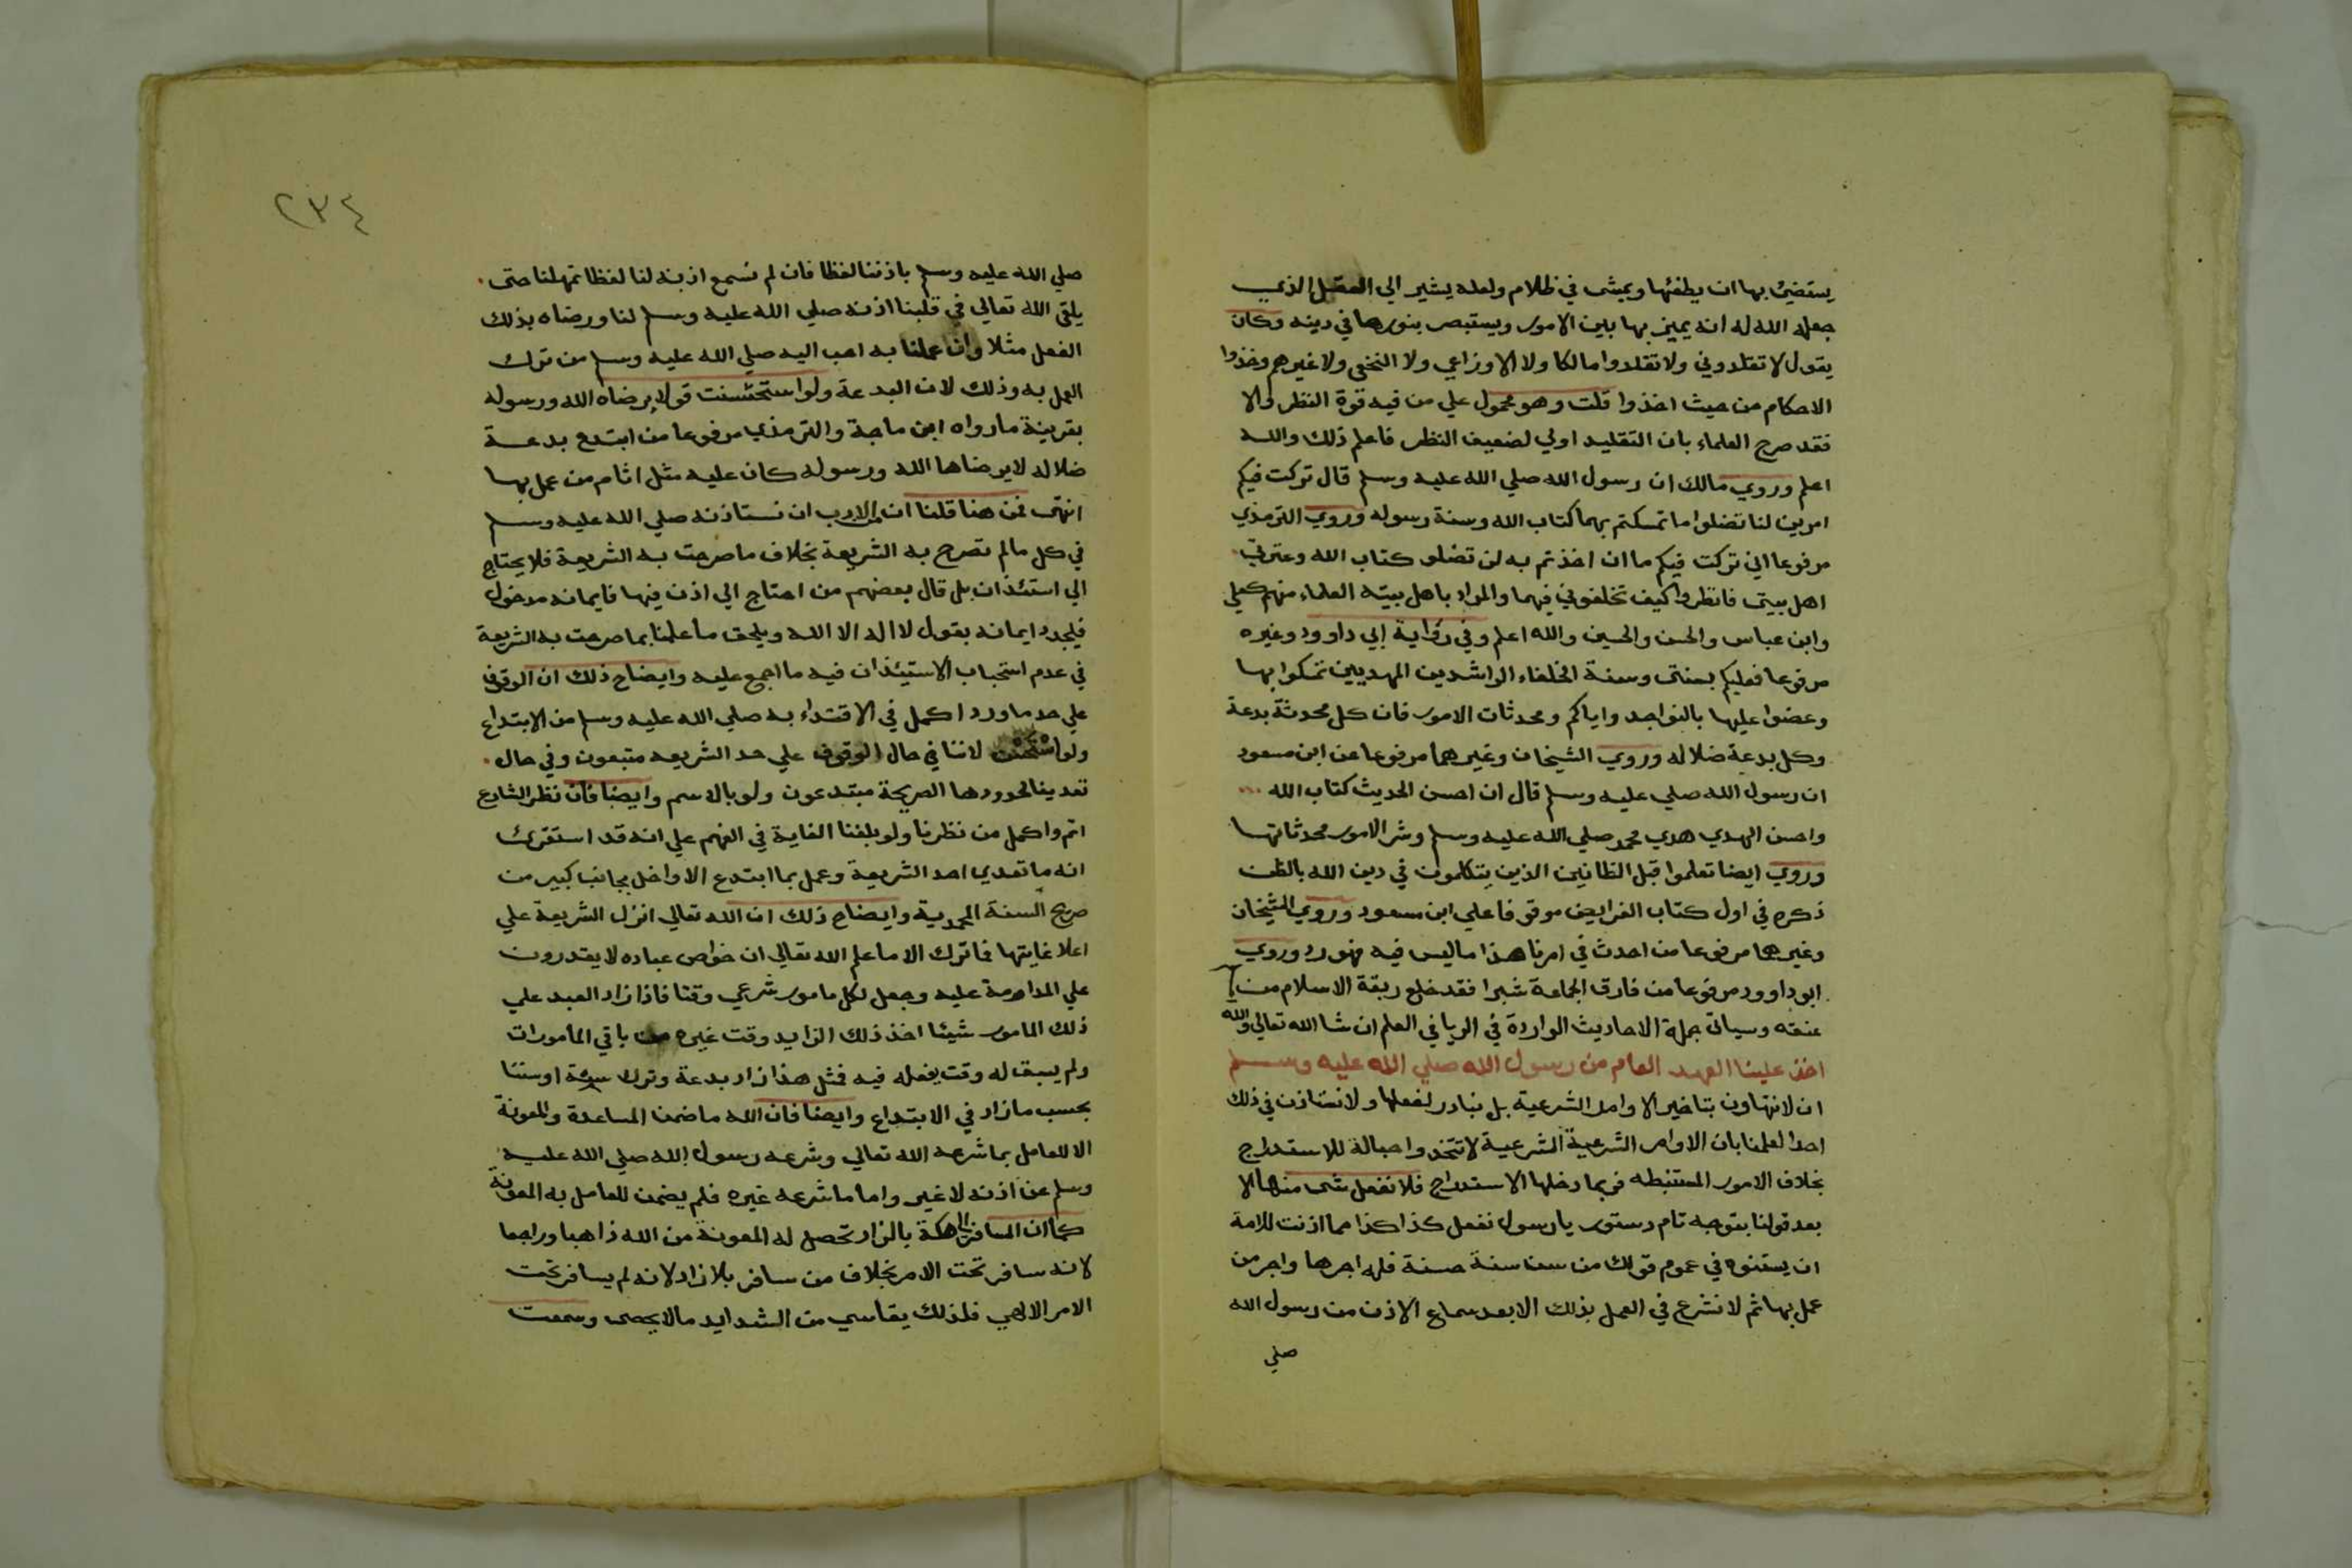 يستضئ بها ان يطفئها ويمشى في ظلام ولعله يشير الي العقل الذي
جعله الله له انه يميز بها بين الامور ويستبصر بنورها في دينه وكان
يقول لا تقلدوني ولا تقلدوا مالكا ولا الاوزاعي ولا النخعي ولا غيرهم وخذوا
الاحكام من حيث اخذوا قلت وهو محمول علي من فيه قوة النظر والا
فقد صرح العلماء بان التقليد اولي لضعيف النظر فاعلم ذلك والله
اعلم وروي مالك ان رسول الله صلي الله عليه وسلم قال تركت فيكم
امرين لنا تضلوا ما تمسكتم بهما كتاب الله وسنة رسوله وروي الترمذي
مرفوعا اني تركت فيكم ما ان اخذتم به لن تضلو كتاب الله وعترتي
اهل بيتى فانظروا كيف تخلفوني فيهما والمراد باهل بيته العلماء منهم كعلي
وابن عباس والحسن والحسين والله اعلم وفي رواية ابي داوود وغيره
مرفوعا فعليكم بسنتى وسنة الخلفاء الراشدين المهديين تمسكوا بها
وعضوا عليها بالنواجد واياكم ومحدثات الامور فان كل محدثة بدعة
وكل بدعة ضلاله وروي الشيخان وغيرهما مرفوعا عن ابن مسعود
ان رسول الله صلي عليه وسلم قال ان احسن الحديث كتاب الله
واحسن الهدي هدي محمد صلي الله عليه وسلم وشر الامور محدثاتها
وروي ايضا تعلموا قبل الظانين الذين يتكلمون في دين الله بالظن
ذكره في اول كتاب الفرايض موقوفا علي ابن مسعود وروي الشيخان
وغيرها مرفوعا من احدث في امرنا هذا ما ليس فيه فهو رد وروي
ابو داوود مرفوعا من فارق الجماعة شبرا فقد خلع ربقة الاسلام من
عنقه وسياتى جملة الاحاديث الواردة في الريا في العلم ان شا الله تعالي والله
اخذ علينا العهد العام من رسول الله صلي الله عليه وسلم
ان لا نتهاون بتاخير الاوامر الشرعية بل نبادر لفعلها ولا نستاذن في ذلك
احدا لعلمنا بان الاوامر الشرعية الشرعية لا تتخذوا حبالة للاستدراج
بخلاف الامور المستنبطه فربما دخلها الاستدراج فلا نفعل شى منها الا
بعد قولنا بتوجه تام دستور يا رسول نفعل كذا كذا مما اذنت للامة
ان يستنوه في عموم قولك من سن سنة حسنة فله اجرها واجر من
عمل بها ثم لا نشرع في العمل بذلك الا بعد سماع الاذن من رسول الله
صلي
٢٣٤
صلي الله عليه وسلم باذننا لفظا فان لم نسمع اذنه لنا لفظا تمهلنا حتى
يلقى الله تعالي في قلبنا اذنه صلي الله عليه وسلم لنا ورضاه بذلك
الفعل مثلا وان عملنا به احب اليه صلي الله عليه وسلم من ترك
العمل به وذلك لان البدعة ولو استحسنت قولا يرضاه الله ورسوله
بقرينة ما رواه ابن ماجة والترمذي مرفوعا من ابتدع بدعة
ضلاله لا يرضاها الله ورسوله كان عليه مثل اثام من عمل بها
انتهى فمن هنا قلنا ان من الادب ان نستاذنه صلي الله عليه وسلم
في كل مالم تصرح به الشريعة بخلاف ما صرحت به الشريعة فلا يحتاج
الي استئذان بل قال بعضهم من احتاج الي اذن فيها فايمانه مدخول
فليجدد ايمانه بقول لا اله الا الله ويلحق ما علمنا بما صرحت به الشريعة
في عدم استحباب الاستيئذان فيه ما اجمع عليه وايضاح ذلك ان الوقوف
علي حد ما ورد اكمل في الاقتداء به صلي الله عليه وسلم من الابتداع
ولو استحسن لاننا في حال الوقوف علي حد الشريعه متبعون وفي حال
تعدينا لحدودها الصريحة مبتدعون ولو بالاسم وايضا فان نظر الشارع
اتم واكمل من نظرنا ولو بلغنا الغاية في الفهم علي انه قد استقرئ
انه ما تعدي احد الشريعة وعمل بما ابتدع الا واخل بجانب كبير من
صريح السنة المحمدية وايضاح ذلك ان الله تعالي انزل الشريعة علي
اعلا غايتها فاترك الا ما علم الله تعالي ان خواص عباده لا يقدرون
علي المداومة عليه وجعل لكل مامور شرعي وقتا فاذا زاد العبد علي
ذلك المامور شيئا اخذ ذلك الزايد وقت غيره من باقي المامورات
ولم يبق له وقت يفعله فيه فمثل هذا زاد بدعة وترك سنة او سننا
بحسب ما زاد في الابتداع وايضا فان الله ما ضمن المساعدة والمعونة
الا للعامل بما شرعه الله تعالي وشرعه رسول الله صلي الله عليه
وسلم عن اذنه لا غير واما ما شرعه غيره فلم يضمن للعامل به المعونة
كما ان المسافر الي مكة بالزاد تحصل له المعونة من الله ذاهبا وراجعا
لانه سافر تحت الامر بخلاف من سافر بلا زاد لانه لم يسافر تحت
الامر الالهي فلذلك يقاسي من الشدايد مالا يحصى وسمعت